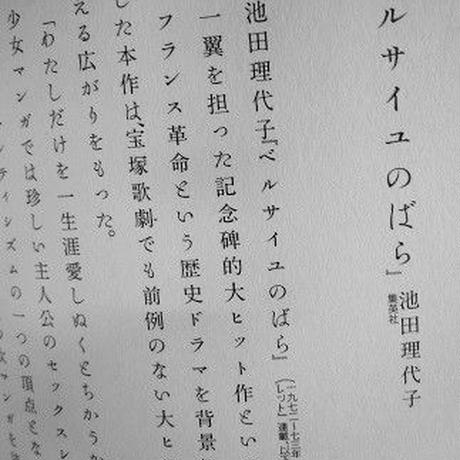 ルサイユのばら』池田理代子
集英社
池田理代子『ベルサイユのばら』(一九七二〜七三年
一翼を担った記念碑的大ヒット作とい
フランス革命という歴史ドラマを背景
した本作は、宝塚歌劇でも前例のない大ヒ
える広がりをもった。
「わたしだけを一生涯愛しぬくとちかうか
少女マンガでは珍しい主人公のセックスシ
ンティシズムの一つの頂点とな